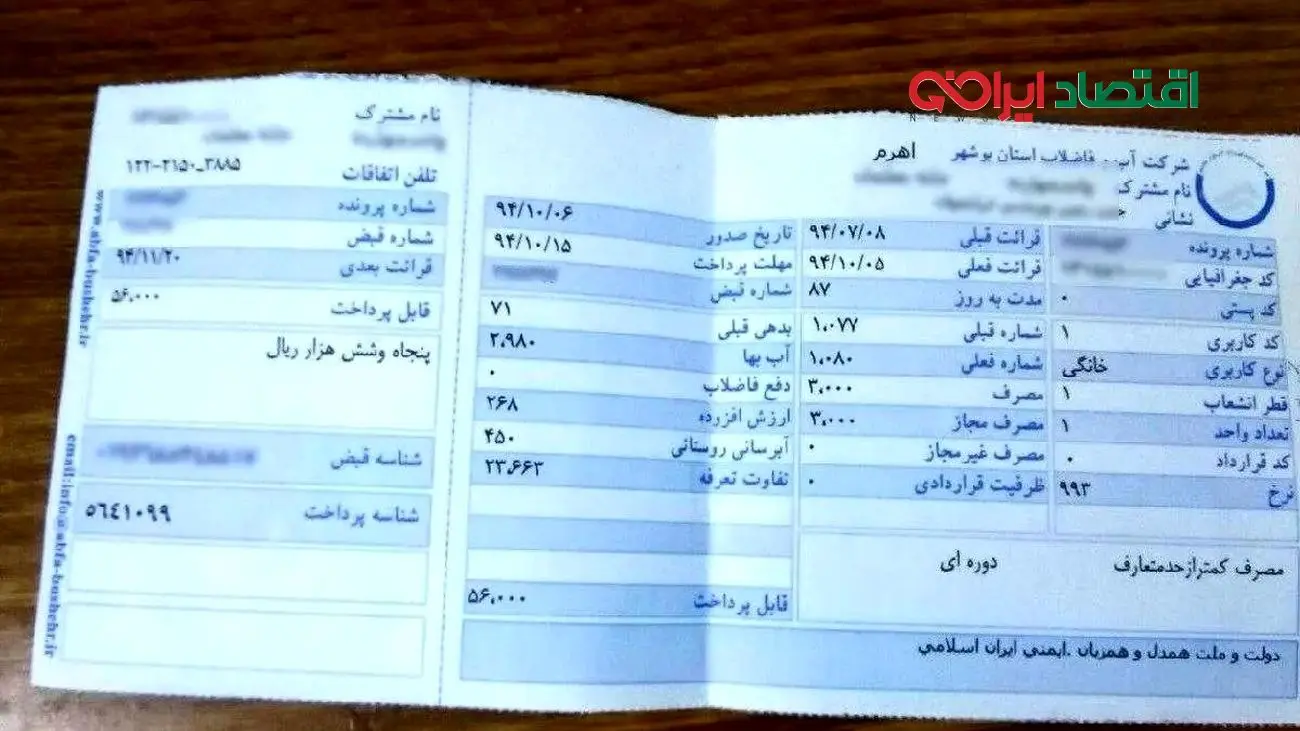 اقتصاد ایران
NEWS
شرکت آب و فاضلاب استان بوشهر اهرم
نام مشترک
نشانی
شماره پرونده
کد جغرافیایی
کد پستی ۰
کد کاربری ۱
نوع کاربری خانگی
قطر انشعاب ۱
تعداد واحد ۱
کد قرارداد ۰
نرخ ۹۹۳
قرائت قبلی ۹۴/۰۷/۰۸
قرائت فعلی ۹۴/۱۰/۰۵
مدت به روز ۸۷
شماره قبلی ۱،۰۷۷
شماره فعلی ۱،۰۸۰
مصرف ۳،۰۰۰
مصرف مجاز ۳،۰۰۰
مصرف غیرمجاز ۰
ظرفیت قراردادی ۰
مصرف کمترازحدمتعارف دوره ای
تاریخ صدور ۹۴/۱۰/۰۶
مهلت پرداخت ۹۴/۱۰/۱۵
شماره قبض
بدهی قبلی ۷۱
آب بها ۲،۹۸۰
دفع فاضلاب ۰
ارزش افزوده ۲۶۸
آبرسانی روستائی ۴۵۰
تفاوت تعرفه ۲۳،۶۶۳
قابل پرداخت ۵۶،۰۰۰
دولت و ملت همدل و همزبان .ایمنی ایران اسلامی
نام مشترک
تلفن اتفاقات ۱۲۲-۲۱۵۰_۳۸۸۵
شماره پرونده
شماره قبض
قرائت بعدی ۹۴/۱۱/۲۰
قابل پرداخت ۵۶،۰۰۰
پنجاه وشش هزار ریال
شناسه قبض
شناسه پرداخت ۵۶۴۱۰۹۹
www.abfa-bushehr.ir
email:info@abfa-bushehr.ir